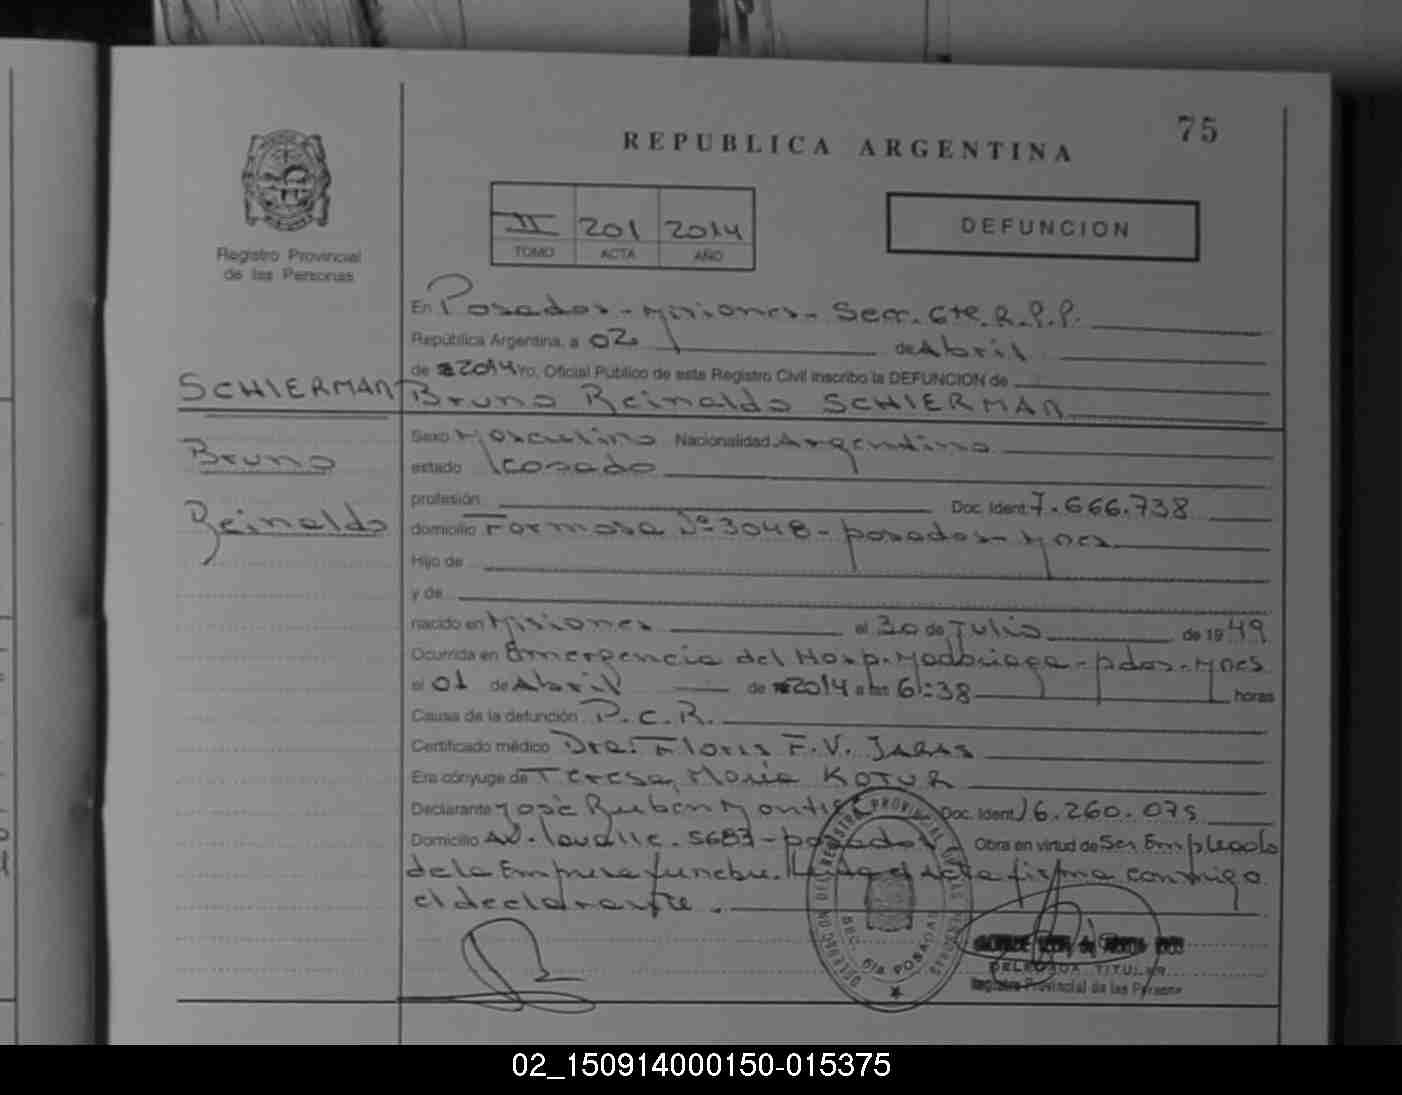 75
REPUBLICA ARGENTINA
II 201 2014
TOMO ACTA AÑO
DEFUNCION
Registro Provincial
de las Personas
SCHIERMAN
Bruno
Reinaldo
En Posadas - Misiones - Secc. 6ta. R.P.P.
República Argentina, a 02 de Abril
de 2014 Yo, Oficial Público de este Registro Civil inscribo la DEFUNCION de
Bruno Reinaldo SCHIERMAN
Sexo Masculino Nacionalidad Argentina
estado Casado
profesión Doc. Ident 7.666.738
domicilio Formosa Nº 3048 - posadas - Mnes
Hijo de
y de
nacido en Misiones el 30 de Julio de 1949
Ocurrida en Emergencia del Hosp. Madariaga - pdas - Mnes
el 01 de Abril de 2014 a las 6:38 horas
Causa de la defunción P.C.R.
Certificado médico Dra: Floris F.V. JARAS
Era cónyuge de Teresa, María KOTUR
Declarante José Ruben Doc. Ident 16.260.075
Domicilio Av. lavalle. 5683 - posadas Obra en virtud de Ser Empleado
de la Empresa funebre. el Acta firma conmigo
el declarante.
DIRECCION DEL REGISTRO PROVINCIAL DE LAS PERSONAS
SEC. 6ta POSADAS
DELEGADA TITULAR
Registro Provincial de las Personas
02_150914000150-015375